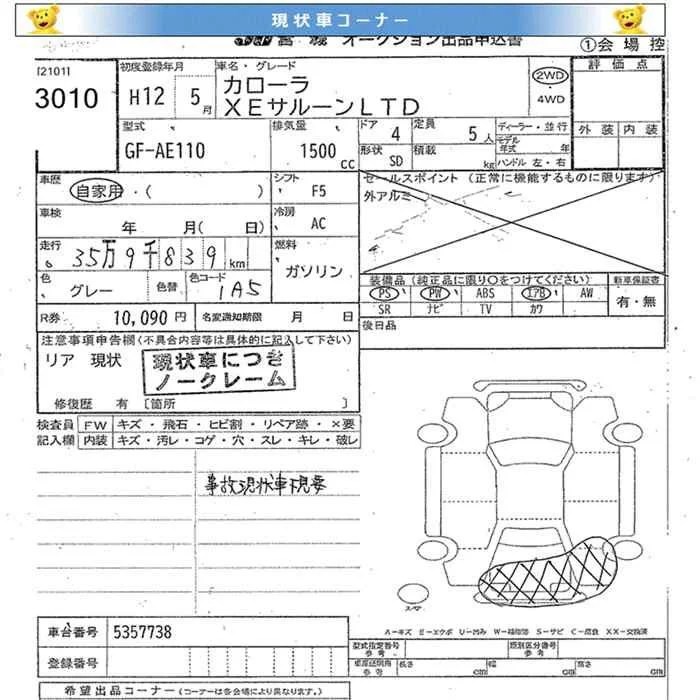 現状車コーナー
オークション出品申込書
①会場控
[2101]
3010
初度登録年月
H12 5月
車名・グレード
カローラ
XEサルーンLTD
2WD
4WD
評価点
外装 内装
型式
GF-AE110
排気量
1500cc
ドア 4
定員 5人
ディーラー・並行
モデル年式 年
形状 SD
積載 kg
ハンドル 左・右
車歴
自家用・( )
シフト F5
セールスポイント (正常に機能するものに限ります)
外アルミ
車検
年 月( 日)
冷房 AC
走行
35万9千839km
燃料
ガソリン
色
グレー
色替
色コード
1A5
装備品 (純正品に限り○をつけてください)
新車保証書
PS PW ABS エアB AW
有・無
SR ナビ TV カワ
R券 10,090円
名変通知期限 月 日
後日品
注意事項申告欄(不具合内容等は具体的に記入して下さい)
リア 現状
現状車につき
ノークレーム
修復歴 有 [箇所 ]
検査員
記入欄
FW キズ・飛石・ヒビ割・リペア跡・×要
内装 キズ・汚レ・コゲ・穴・スレ・キレ・破レ
事故現状車下見要
スペア
A-キズ E-エクボ U-凹み W-補修跡 S-サビ C-腐食 XX-交換済
車台番号 5357738
型式指定番号
参考
類別区分番号
参考
登録番号
車庫証明用
参考
長さ cm
幅 cm
高さ cm
希望出品コーナー(コーナーは各会場により異なります。)